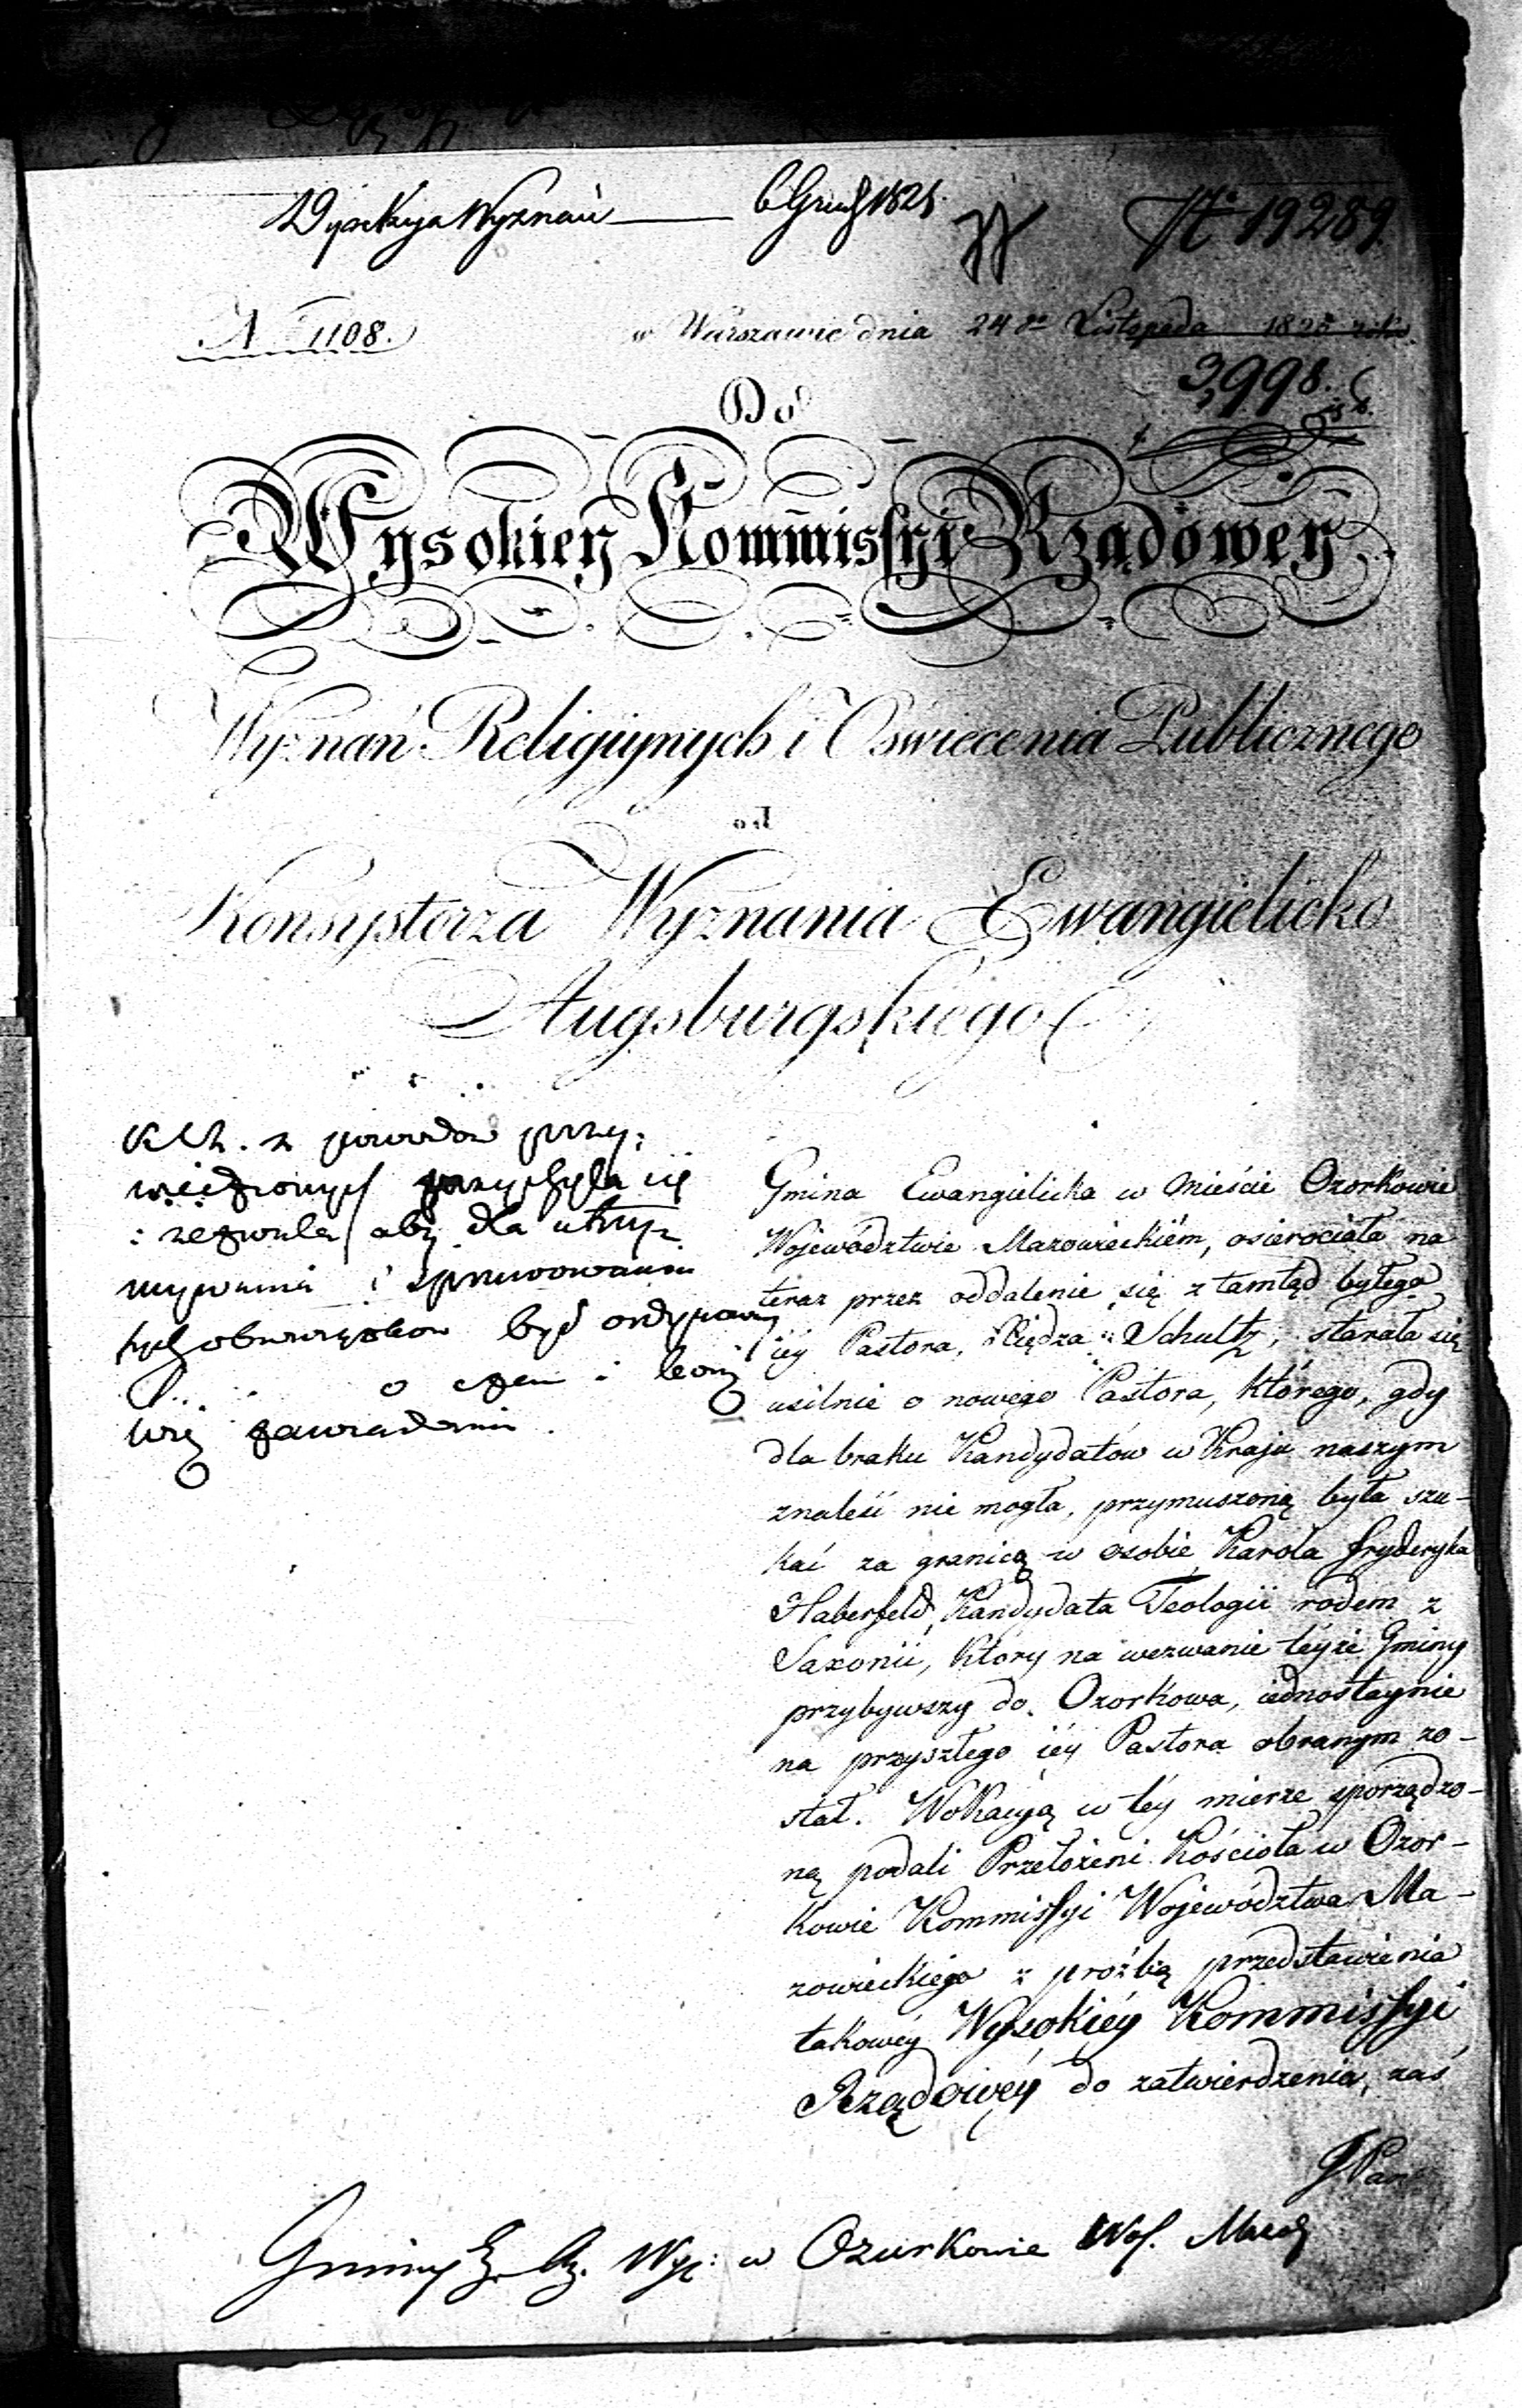 Dyrekcya Wyznań — 6 Grud 1825.
No 19289.
N 1108.
w Warszawie dnia 24go Listopada 1825 roku.
3,998.
Do
Wysokiey Kommissyi Rządowey
Wyznań Religiynych i Oświecenia Publicznego
od
Konsystorza Wyznania Ewangielicko
Augsburgskiego
z powodów przy=
wiedzionych przychyla się
i zezwala aby dla utrzy=
mywania i sprawowania
tych obowiązków był ordynowany
o czem i
zawiadomi.
Gmina Ewangielicka w mieście Ozorkowie
Województwie Mazowieckiém, osierociała na
teraz przez oddalenie się z tamtąd byłego
iéy Pastora, Xiędza Schultz, starała się
usilnie o nowego Pastora, którego, gdy
dla braku Kandydatów w Kraju naszym
znaleść nie mogła, przymuszoną była szu-
kać za granicą w osobie Karola Fryderyka
Haberfeld, Kandydata Teologii rodem z
Saxonii, który na wezwanie téyże Gminy
przybywszy do Ozorkowa, iednostaynie
na przyszłego iéy Pastora obranym zo-
stał. Wokacyą w téy mierze sporządzo-
ną podali Przełożeni Kościoła w Ozor-
kowie Kommissyi Województwa Ma-
zowieckiego z proźbą przedstawienia
takowéy Wysokiéy Kommissyi
Rządowéy do zatwierdzenia, zaś
JPan
Gminy w Ozurkowie